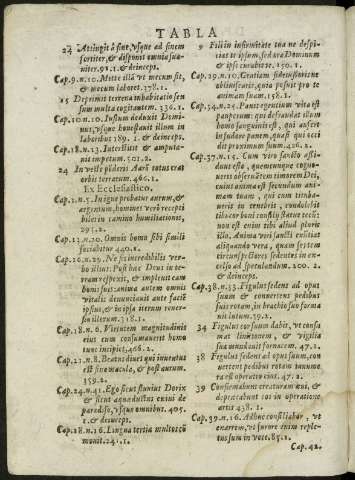 TABLA
24 Attingit à fine, vsque ad finem
fortiter, & disponit omnia sua-
uiter. 91.1. & deinceps.
Cap.9.n.10. Mitte illã vt mecum sit,
& mecum laboret. 378.1.
15 Deprimit terrena inhabitatio sen
sum multa cogitantem. 336.1.
Cap.10.n.10. Iustum deduxit Domi-
nus, vsque honestauit illum in
laboribus 189. 1. & deinceps.
Cap.18.n.13. Intersistit & amputa-
uit impetum. 501.2.
24 In veste poderis Aarõ totus erat
orbis terrarum. 466.1.
Ex Ecclesiastico.
Cap.2.n.5. Igni probatur aurum, &
argentum, homines verò recepti
biles in camino humiliationis,
295.2.
Cap.13.n.20. Omnis homo sibi simili
sociabitur 440.1.
Cap.16.n.29. Ne sis incredibilis ver-
bo illius: Post hæc Deus in ter-
ram respexit, & impleuit eam
bonis suis: Anima autem omnis
vitalis denunciauit ante faciẽ
ipsius, & in ipsa iterum reuer-
sio illorum. 318.1.
Cap.18.n.6. Virtutem magnitudinis
eius cum consumauerit homo
tunc incipiet. 466.2.
Cap.31.n.8. Beatus diues qui inuentus
est sine macula, & post aurum.
359.2.
Cap.24.n.41. Ego sicut fluuius Dorix
& sicut aquæductus exiui de
paradiso, vsque omnibus. 405.
1. & deinceps.
Cap.28.n.16. Lingua tertia multos cõ
mouit. 241.1.
9 Fili in infirmitate tua ne despi-
cias te ipsum, sed ora Dominum
& ipse curabit te. 150.1.
Cap.29.n.10. Gratiam fideiussoris ne
obliuiscaris, quia posuit pro te
animam suam. 158.1.
Cap.34.n.25. Panis egentium vita est
pauperum: qui defraudat illum
homo sanguinis est, qui aufert
in sudore panem, quasi qui occi
dit proximum suum. 426.2.
Cap.37.n.15. Cum viro sancto assi-
duus esto, quemcunque cogno-
ueris obseruãtem timorem Dei,
cuius anima est secundum animam
tuam, qui cum tituba-
ueris in tenebris, condolebit
tibi: cor boni consilij statue tecũ:
non est enim tibi aliud pluris
illo. Anima viri sancti enuntiat
aliquando vera, quam septem
circunspectores sedentes in ex-
celso ad speculandum. 200. 2.
& deinceps.
Cap.38.n.33. Figulus sedens ad opus
suum & conuertens pedibus
suis rotam, in brachio suo forma
uit lutum. 39.2.
34 Figulus cor suum dabit, vt consu
mat linitionem, & vigilia
sua mundauit fornacem. 47.1.
38 Figulus sedens ad opus suum, con
uertens pedibus rotam innume
ra est operatio eius. 47.1.
39 Confirmabunt creaturam æui, &
deprecabunt cos in operatione
artis 438.1.
Cap.39.n.16. Adhuc consiliabor, vt
enarrem, vt furore enim reple-
tus sum in voce. 85.1.
Cap.42.